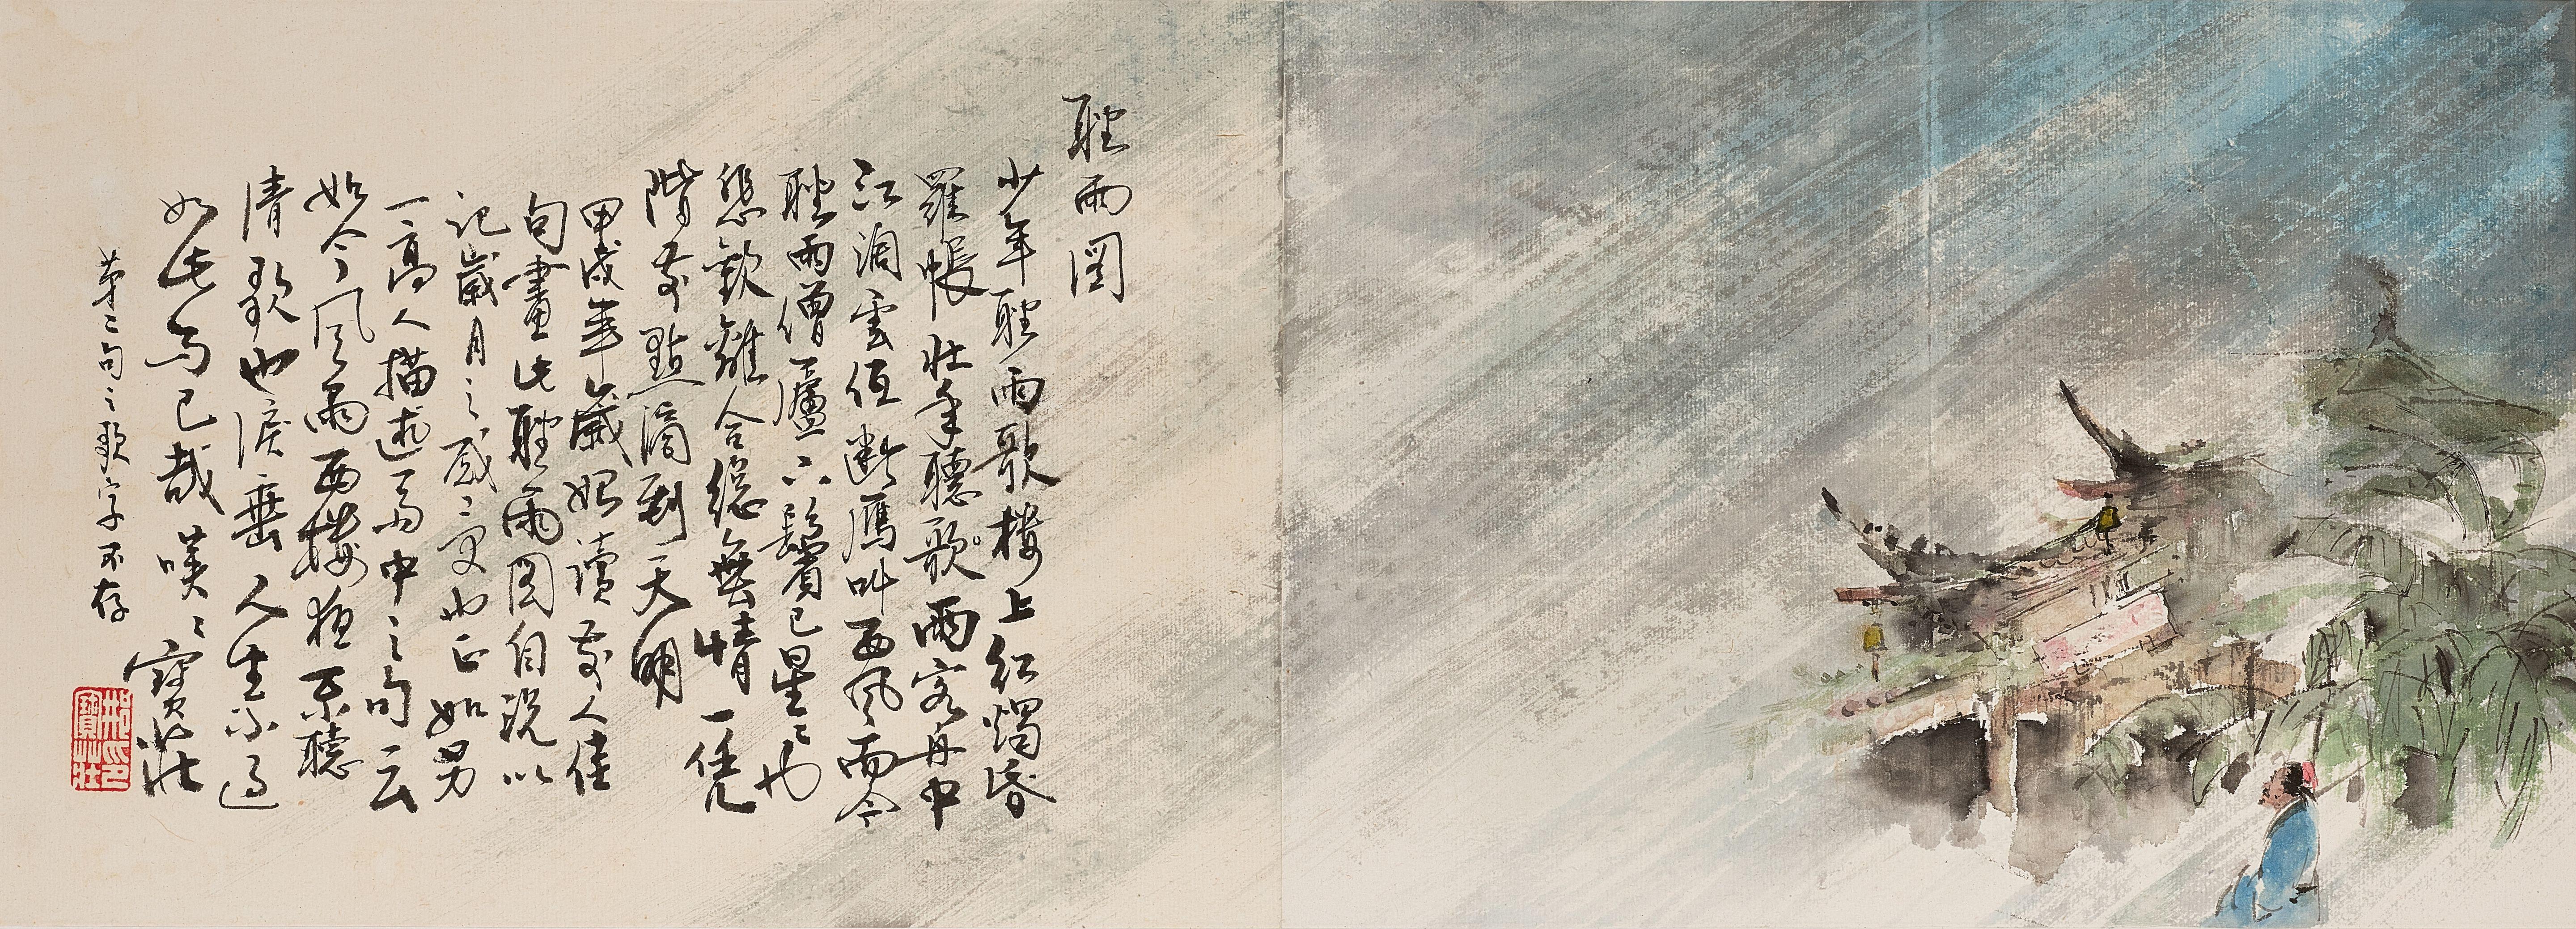 聽雨図
少年聽雨歌樓上紅燭昏
羅帳壯年聽歌雨客舟中
江濶雲低斷鴈叫西風而今
聽雨僧廬下鬢已星〻也
悲歡離合總無情一凭
階前點滴到天明
甲戌年歲始讀前人佳
句畫此聽雨図自説以
记歲月之感〻也正如另
一高人描述雨中之句云
如今風雨西樓夜不聽
清歌也淚垂人生不過
如此而已哉嘆〻寶莊
第二句之歌字不存
邢印寶莊